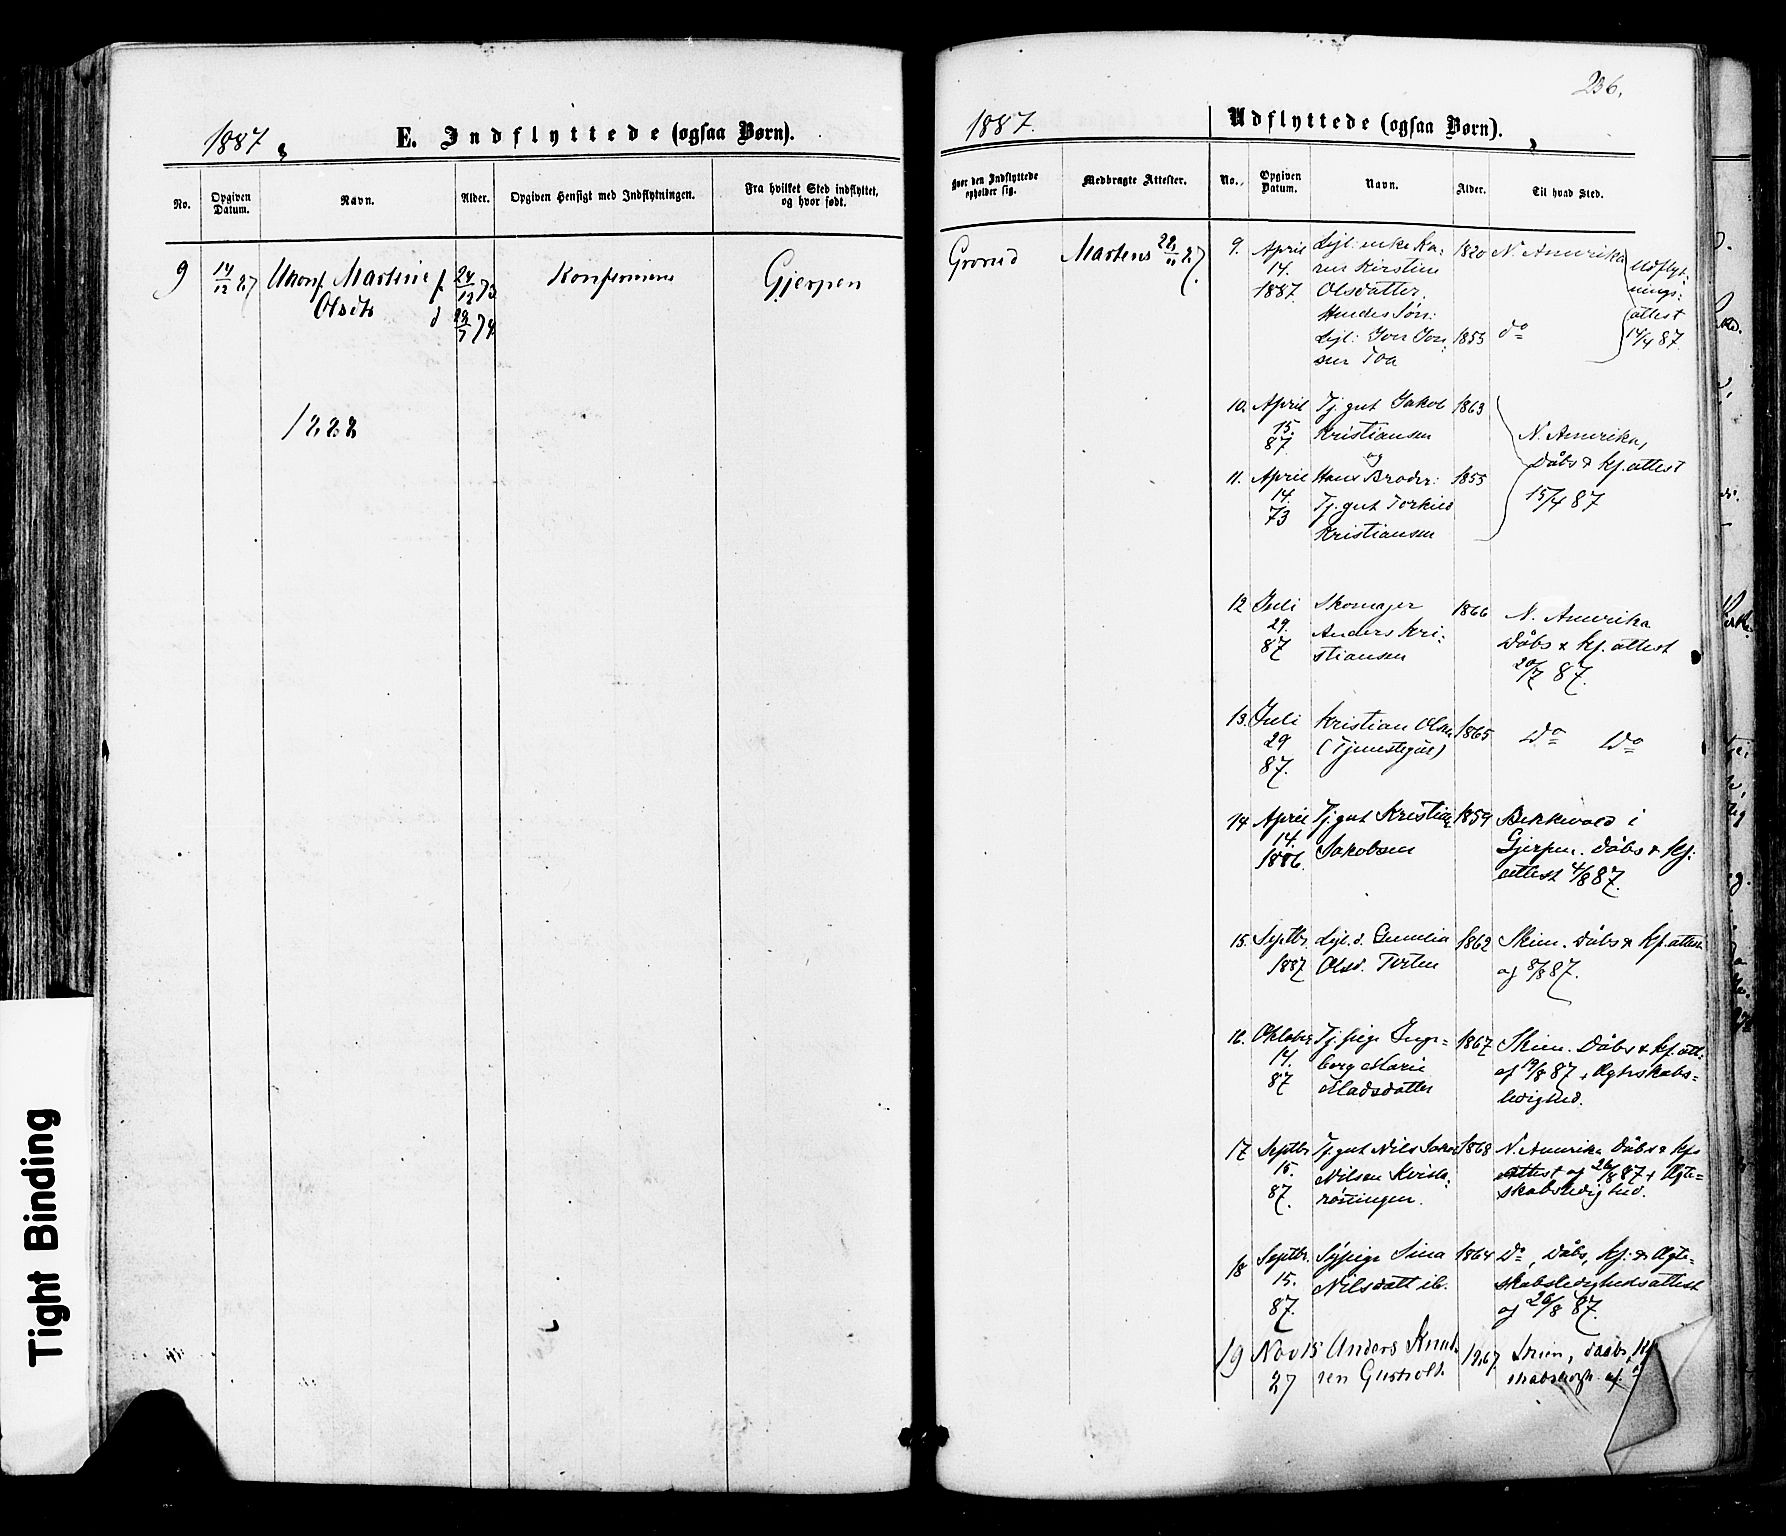 1887
E. Indflyttede (ogsaa Børn).
No.
Opgiven Datum.
Navn.
Alder.
Opgiven Hensigt med Indflytningen.
Fra hvilket Sted indflyttet,
og hvor født.
9 14/12 87 Ukonf. Martine f. 24/12 73 Konfirmeres Gjerpen
Olsdtr d
1888
236.
1887.
Udflyttede (ogsaa Børn).
Hvor den Indflyttede
opholder sig.
Medbragte Attester.
No.
Opgiven Datum.
Navn.
Alder.
Til hvad Sted.
Grorud Martens 87
9. April Lejl: enke Ka- 1820 N. Amerika Udflyt-
14. ren Kirstine nings-
1887 Olsdatter. attest
Hendes Søn: 14/4 87.
Lejl: Jon Jon- 1855 do
sen
10. April Tj. gut Jakob 1863
15. Kristiansen N. Amerika,
87 og Dåbs & kf. attest
11. April Hans Broder: 1855 15/4 87
14. Tj. gut Torkild
73 Kristiansen
12 Juli Skomager 1866 N. Amerika
29. Anders Kri- Dåbs & kf. attest
87 stiansen 20/7 87.
13. Juli Kristian Olsen 1865 Do Do
29 (Tjenestegut)
87.
14 April Tj. gut Kristian 1859 Bekkevold i
14. Jakobsen Gjerpen. Dåbs & kf.
1886. attest 4/8 87.
15. Septbr. Lejl. d. Gunelia 1862 Skien. Dåbs & kf. attest
1887 Olsd. Terten af 8/8 87.
16. Oktober Tj. pige Inge- 1867 Skien. Dåbs & kf. att.
14. borg Marie af 19/8 87 & Ægteskabs-
87 Madsdatter ledighed.
17 Septbr Tj. gut Nils 1868 N. Amerika Dåbs & kf.
15. Nilsen attest af 26/8 87 & Ægte-
87. skabsledighed.
18 Septbr. Sypige Sina 1864 Do, Dåbs, kf. & Ægte-
15. Nilsdatt ib. skabsledighedsattest
87. af 26/8 87.
19 Nov 15 Anders Knud- 1867. Skien, Daabs,
87 sen af
Tight Binding